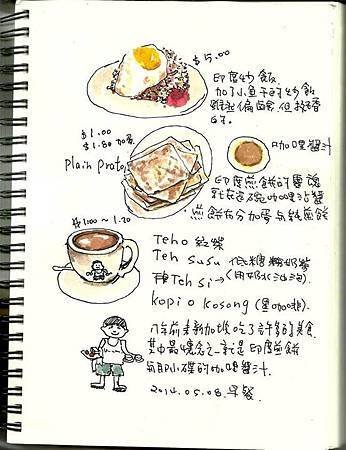 $5.00
印度炒飯
加了小魚干的炒飯
雖然偏甜但挺香
的.
$1.00
$1.80 加蛋
Plain Prata
咖哩醬汁
印度煎餅的靈魂
就在這碗咖哩沾醬
煎餅有分加蛋與純煎餅
$1.00~1.20
Teho 紅茶
Teh susu 低糖 奶茶
Teh si → (用奶水沖泡)
kopi o kosong (黑咖啡).
八年前來新加坡吃了許多的美食
其中最懷念之一就是印度煎餅
與小碟的咖哩醬汁.
2014.05.08. 早餐